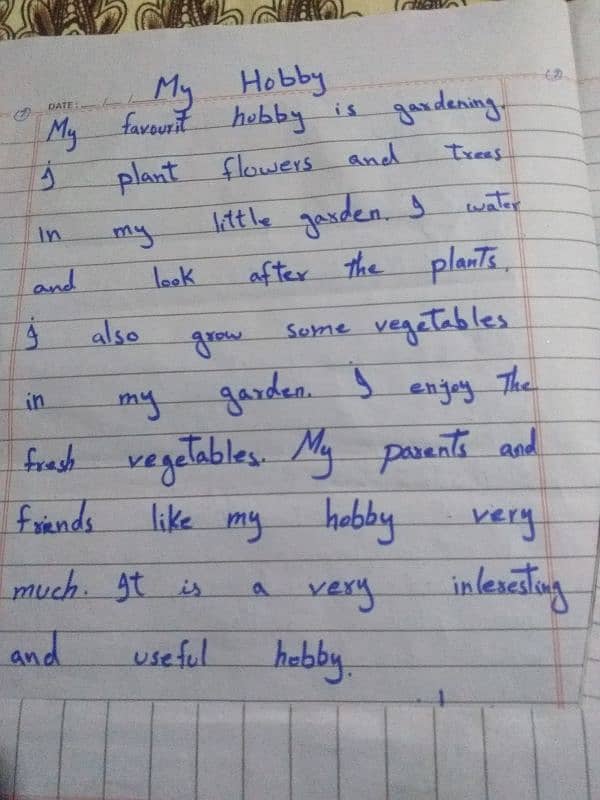 My Hobby
DATE: __/__/__
My favourit hobby is gardening.
I plant flowers and trees
in my little garden. I water
and look after the plants.
I also grow some vegetables
in my garden. I enjoy The
fresh vegetables. My parents and
friends like my hobby very
much. It is a very interesting
and useful hobby.